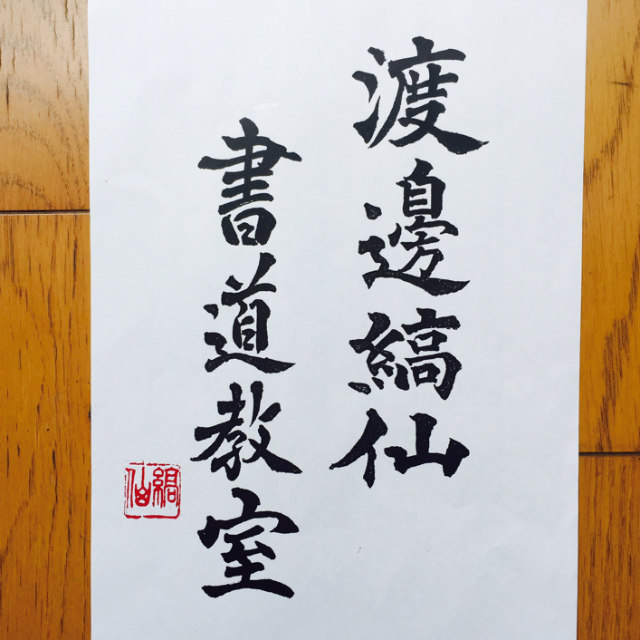 渡邊縞仙
書道教室
縞仙